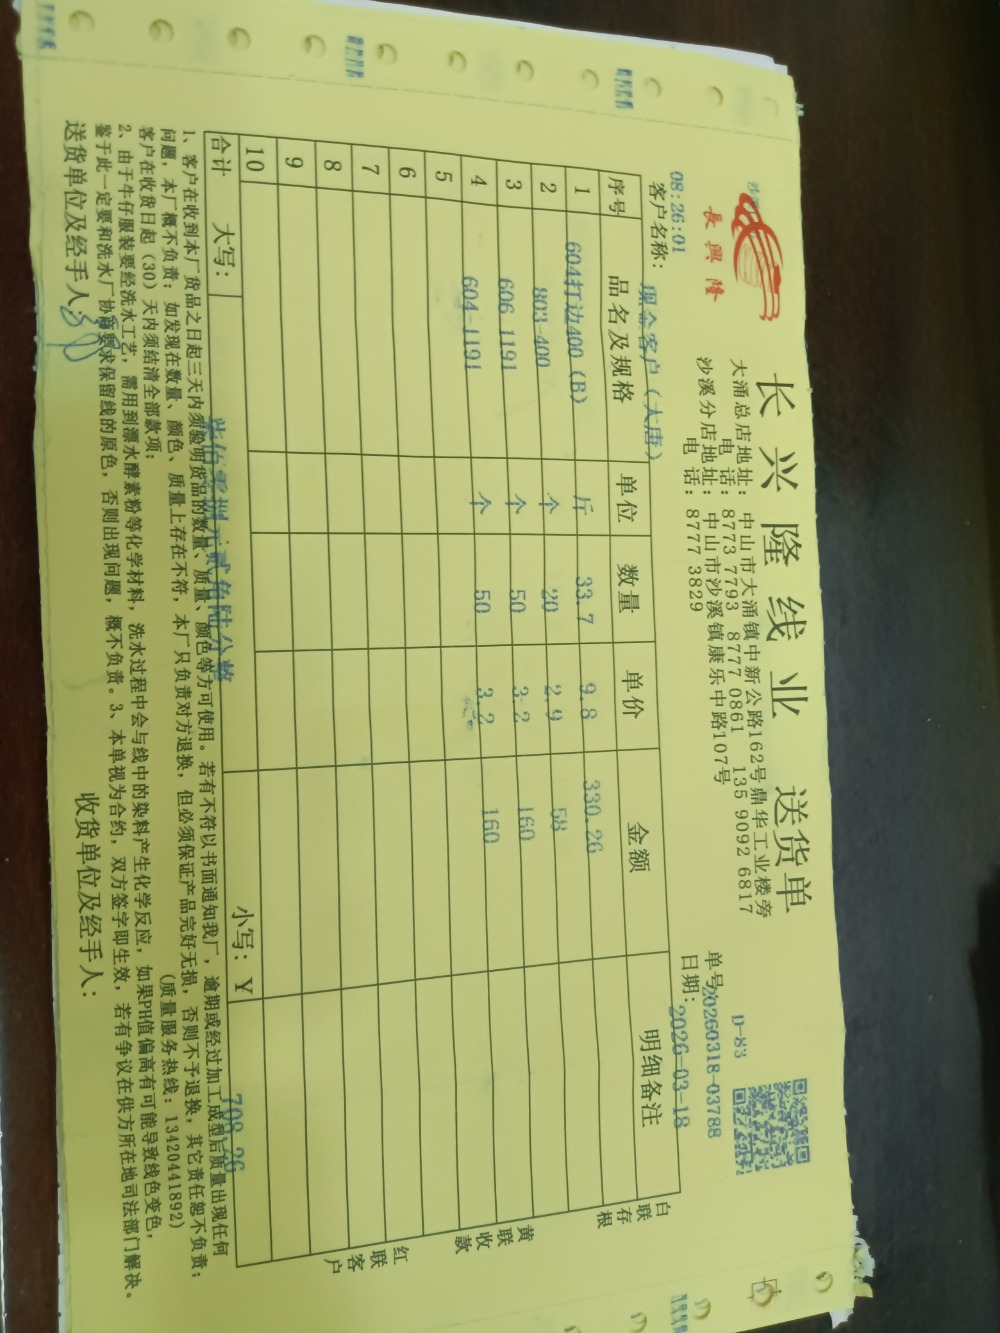 長興隆
长兴隆线业 送货单
大涌总店地址：中山市大涌镇中新公路162号鼎华工业楼旁
电 话：8773 7793 8777 0861 135 9092 6817
沙溪分店地址：中山市沙溪镇康乐中路107号
电 话：8777 3829
D-83
单号：20260318-03788
日期：2026-03-18
08:26:01
客户名称：现金客户（大唐）
序号 品名及规格 单位 数量 单价 金额 明细备注
1 604打边400（B） 斤 33.7 9.8 330.26
2 803-400 个 20 2.9 58
3 606 1191 个 50 3.2 160
4 604-1191 个 50 3.2 160
5
6
7
8
9
10
合计 大写：柒佰零捌元贰角陆分整 小写：Y 708.26
白联存根
黄联收款
红联客户
1、客户在收到本厂货品之日起三天内须验明货品的数量、质量、颜色等方可使用。若有不符以书面通知我厂，逾期或经过加工成型后质量出现任何
问题，本厂概不负责；如发现在数量、颜色、质量上存在不符，本厂只负责对方退换，但必须保证产品完好无损，否则不予退换，其它责任恕不负责；
客户在收货日起（30）天内须结清全部款项； （质量服务热线：13420441892）
2、由于牛仔服装要经洗水工艺，需用到漂水酵素粉等化学材料，洗水过程中会与线中的染料产生化学反应，如果PH值偏高有可能导致线色变色，
鉴于此一定要和洗水厂协商要求保留线的原色，否则出现问题，概不负责。3、本单视为合约，双方签字即生效，若有争议在供方所在地司法部门解决。
送货单位及经手人： 收货单位及经手人：